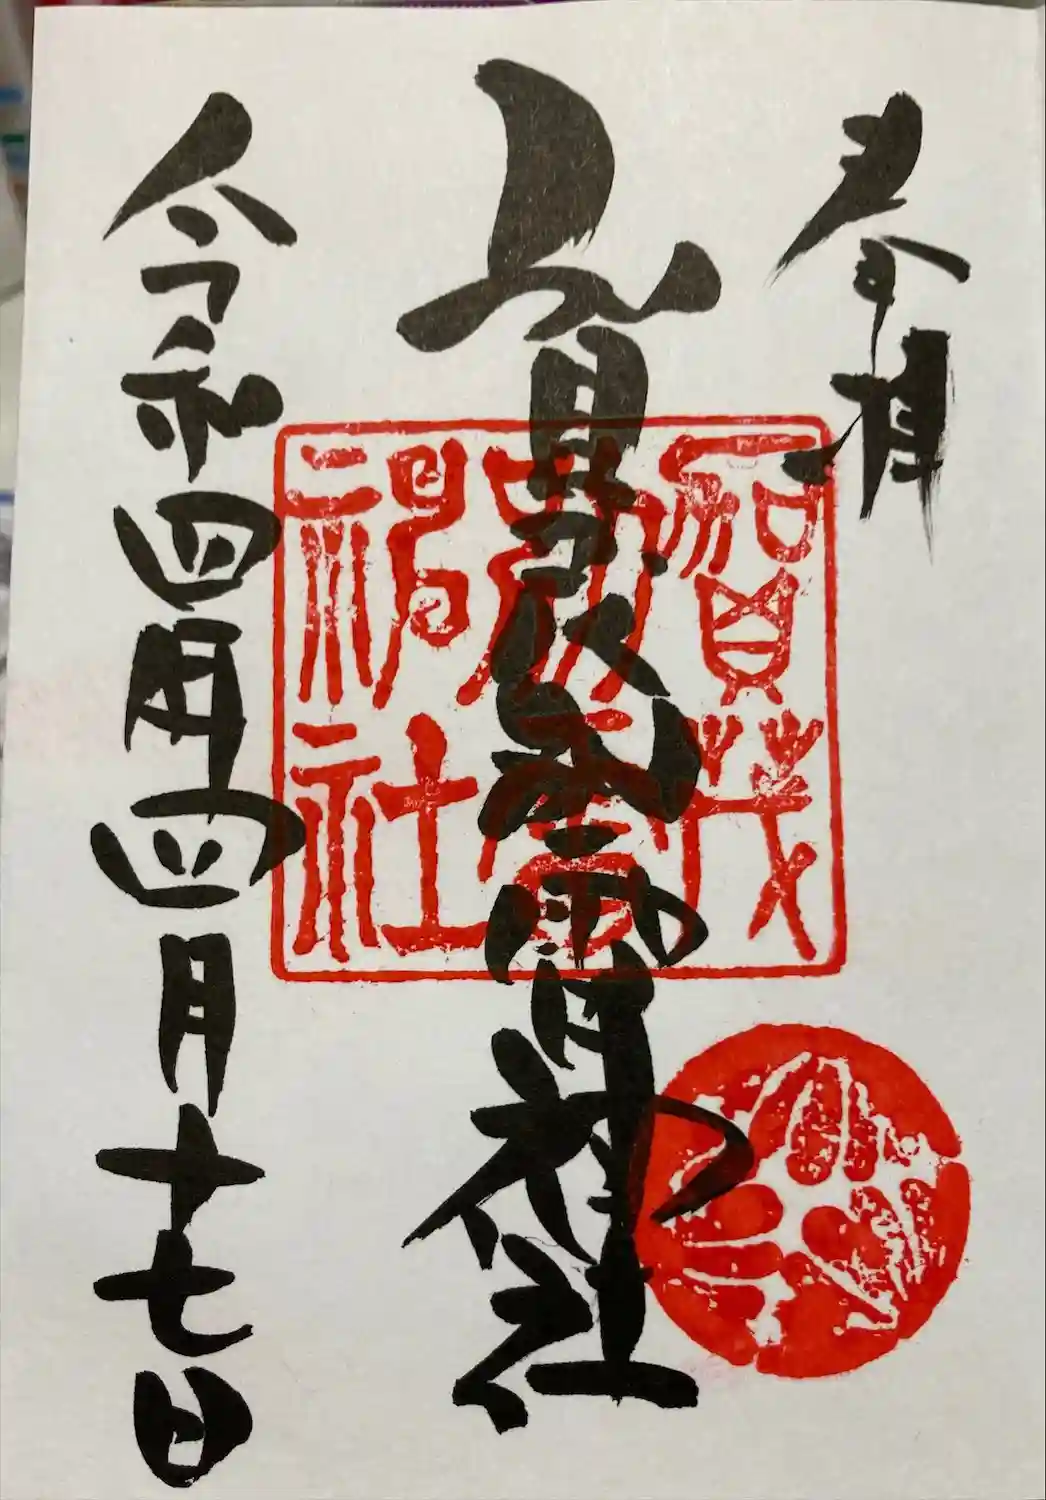 奉拝
賀茂別雷神社
令和四年四月十七日
賀茂
別雷
神社